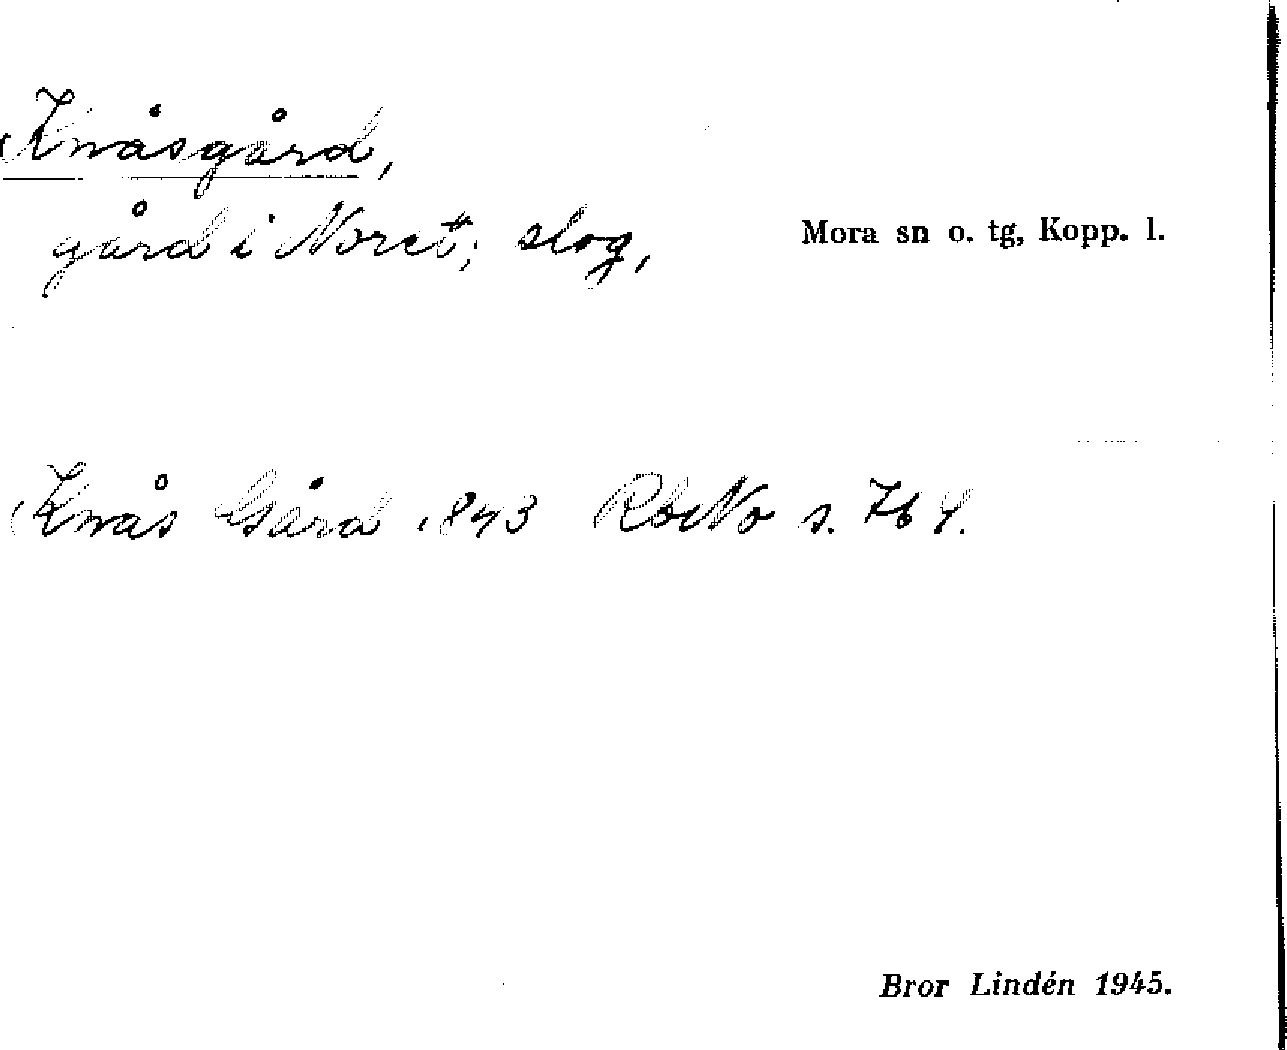 Knåsgård,
gård i Noret; slog,
Mora sn o. tg, Kopp. l.
Knås Gård 1843 RbcNo s. 764.
Bror Lindén 1945.